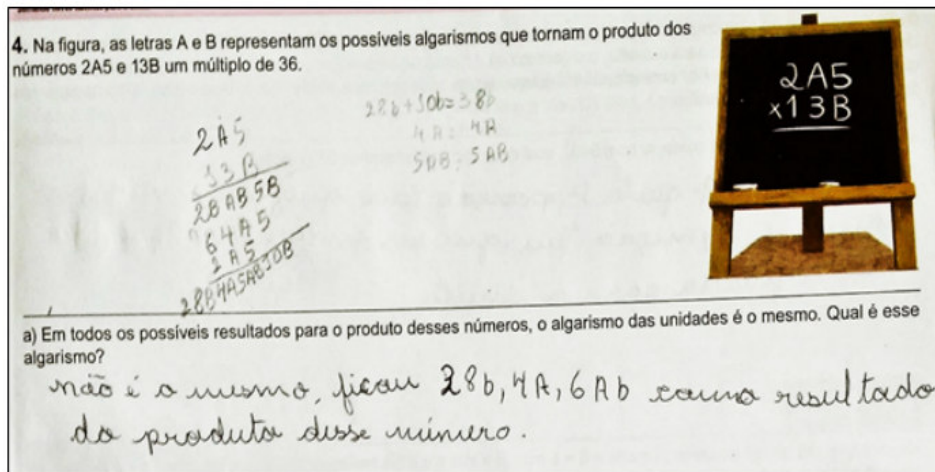 4. Na figura, as letras A e B representam os possíveis algarismos que tornam o produto dos
números 2A5 e 13B um múltiplo de 36.
2A5
×13B
28b+10b=38b
4A = 4A
5AB = 5AB
2A5
13B
2BAB5B
64A5
2A5
28B4A5AB10B
a) Em todos os possíveis resultados para o produto desses números, o algarismo das unidades é o mesmo. Qual é esse
algarismo?
não é o mesmo, ficou 28b, 4A, 6Ab como resultado
do produto desse número.